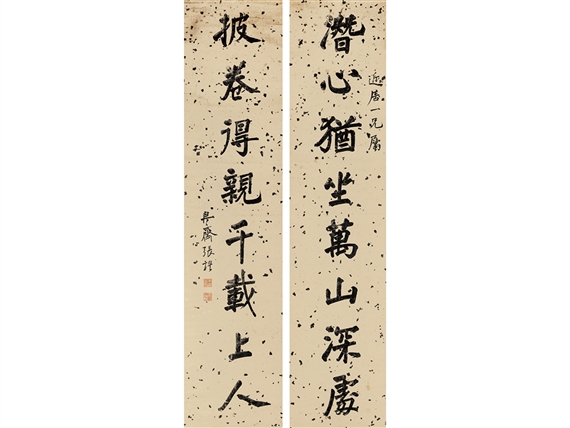 近唐一兄屬
潛心猶坐萬山深處
披卷得親千載上人
張